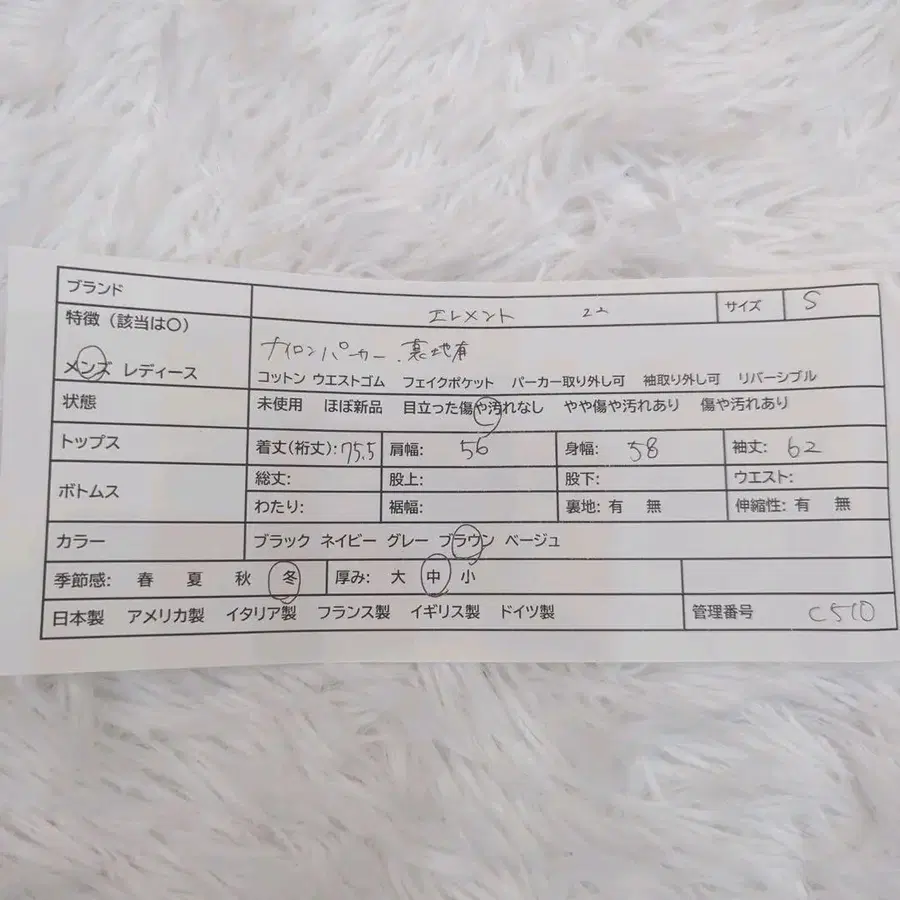 ブランド エレメント 22 サイズ S
特徴（該当は〇）
ナイロンパーカー、裏地有
メンズ レディース コットン ウエストゴム フェイクポケット パーカー取り外し可 袖取り外し可 リバーシブル
状態 未使用 ほぼ新品 目立った傷や汚れなし やや傷や汚れあり 傷や汚れあり
トップス 着丈(裄丈):75.5 肩幅: 56 身幅: 58 袖丈: 62
ボトムス 総丈: 股上: 股下: ウエスト:
わたり: 裾幅: 裏地: 有 無 伸縮性: 有 無
カラー ブラック ネイビー グレー ブラウン ベージュ
季節感: 春 夏 秋 冬 厚み: 大 中 小
日本製 アメリカ製 イタリア製 フランス製 イギリス製 ドイツ製 管理番号 C510